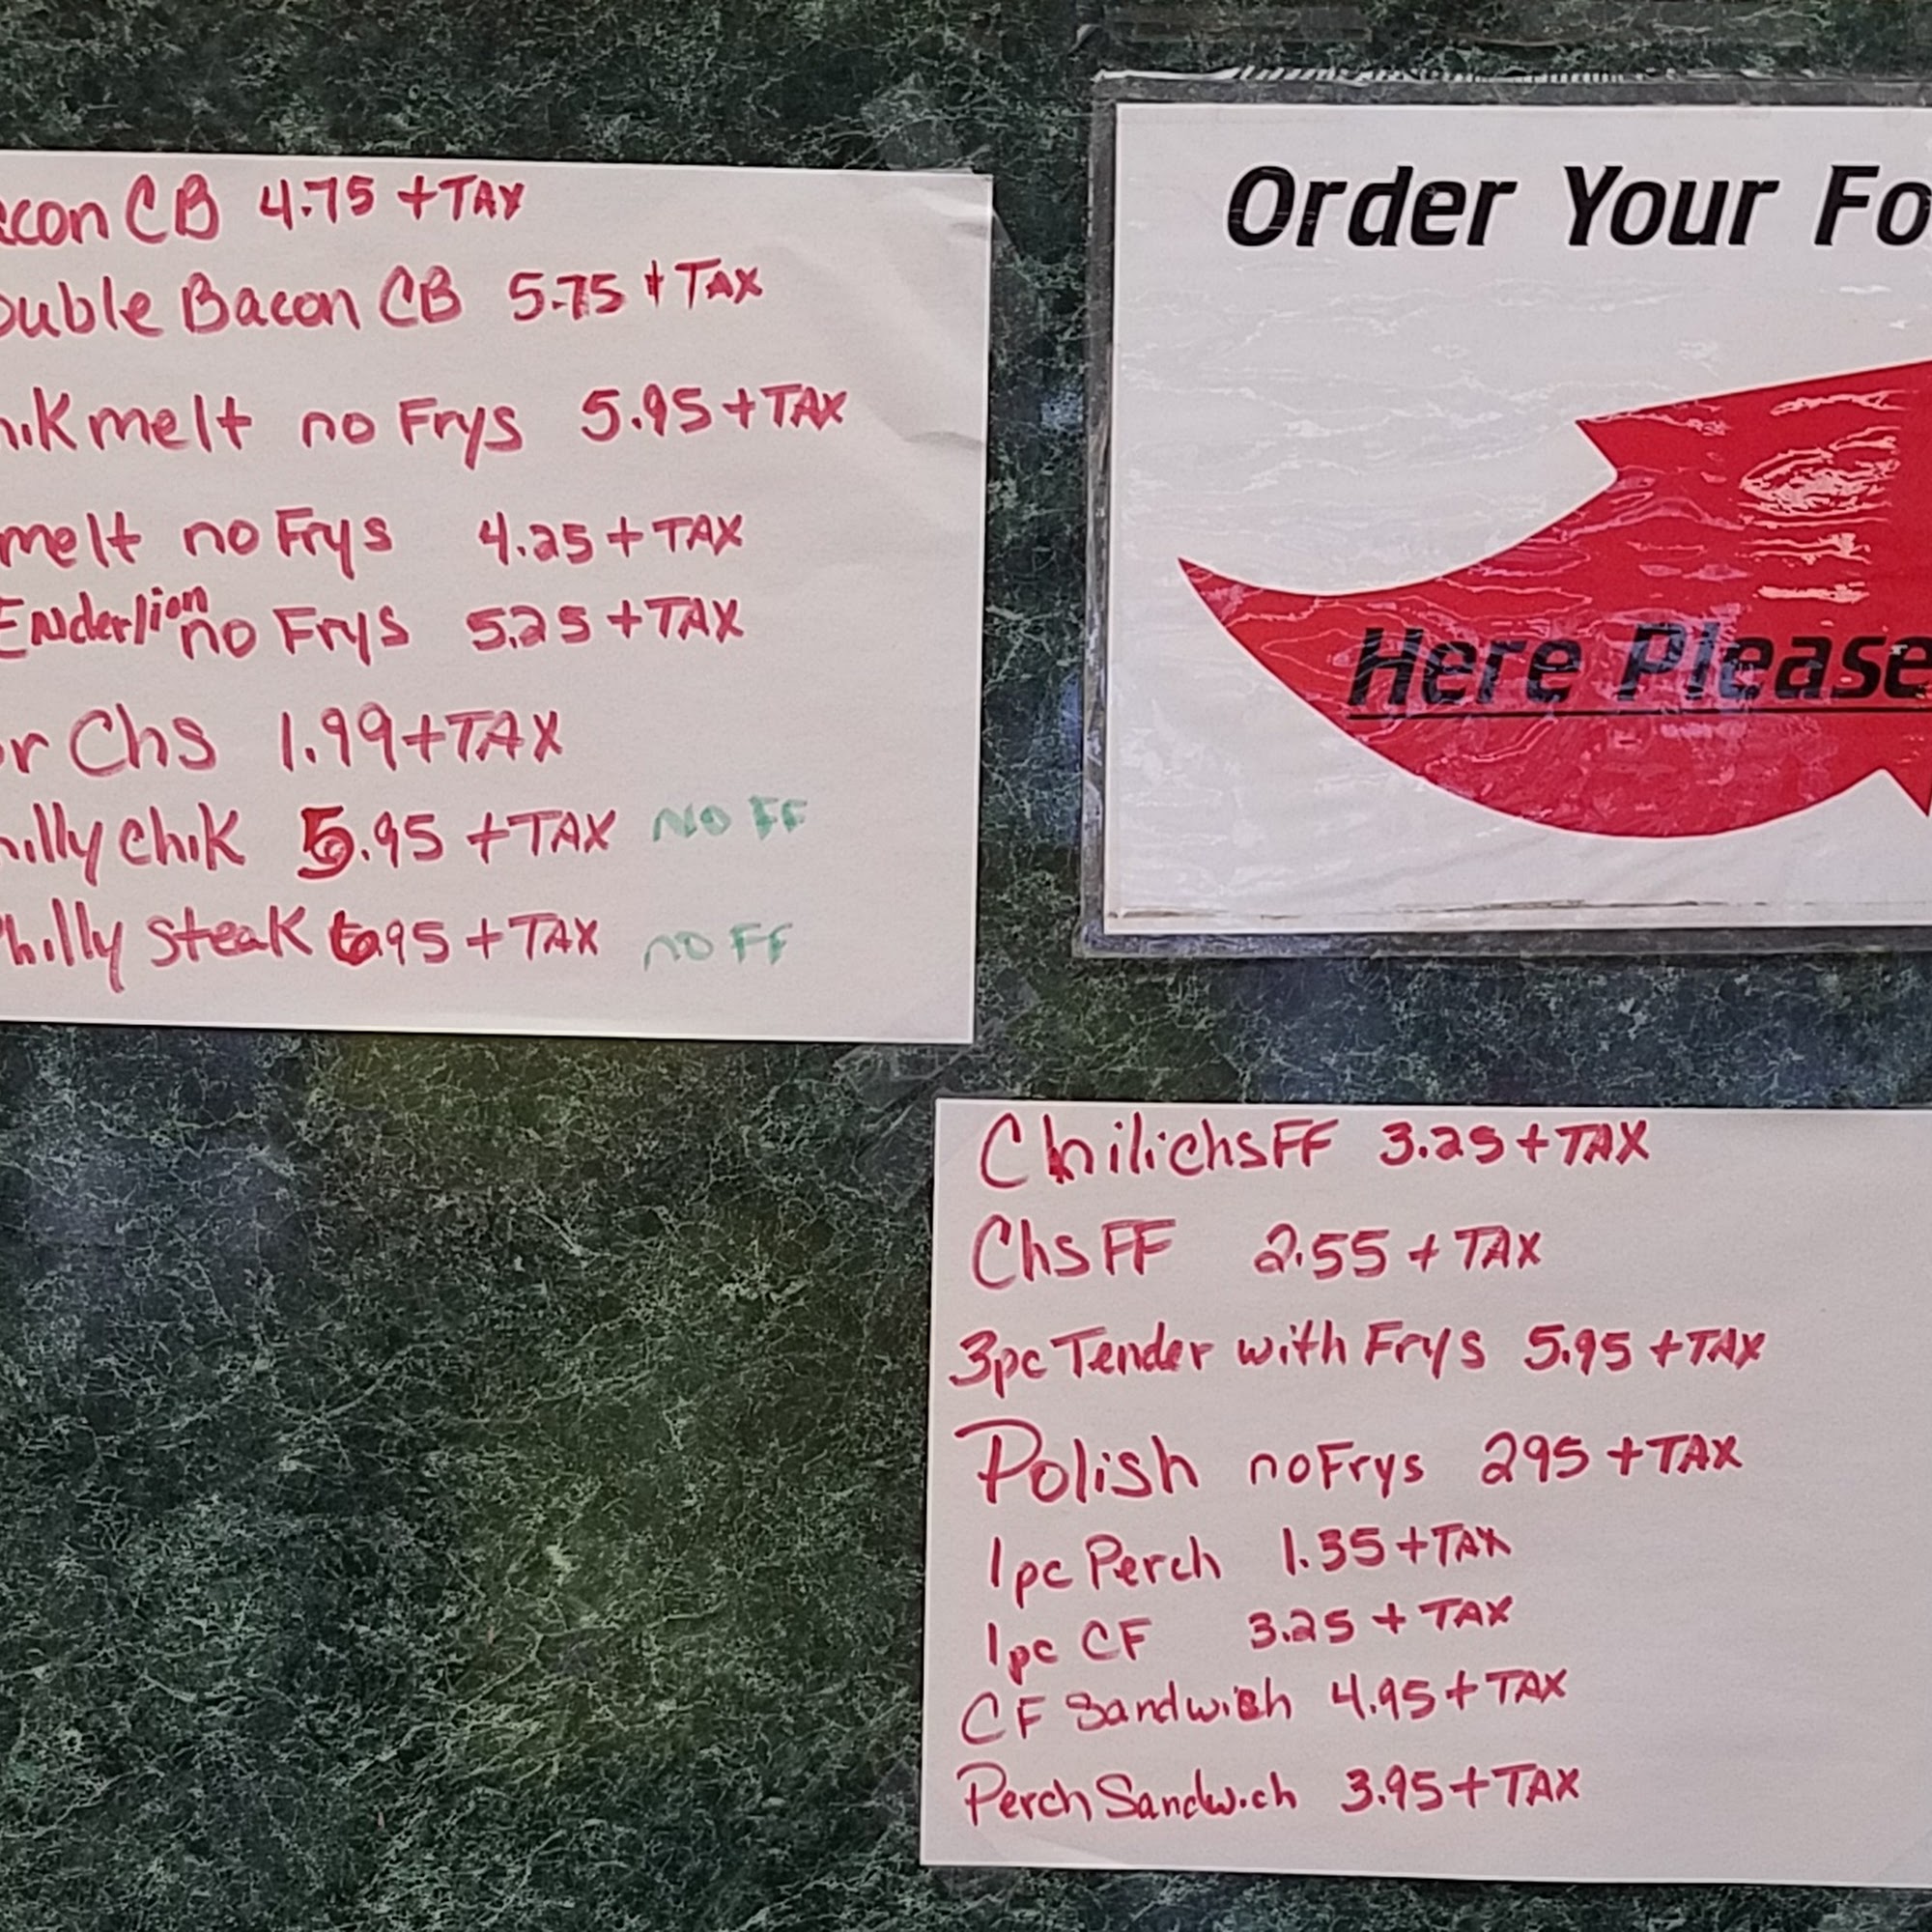 acon CB 4.75 +TAX
ouble Bacon CB 5.75 + TAX
hik melt no Frys 5.95 +TAX
melt no Frys 4.25 + TAX
Enderlion no Frys 5.25 +TAX
or Chs 1.99 +TAX
hilly chik 5.95 +TAX NO FF
Philly steak 6.95 +TAX no FF
Order Your Fo
Here Please
Chili chs FF 3.25 + TAX
Chs FF 2.55 + TAX
3pc Tender with Frys 5.95 +TAX
Polish no Frys 295 +TAX
1pc Perch 1.35 +TAX
1pc CF 3.25 + TAX
CF Sandwich 4.95 + TAX
Perch Sandwich 3.95 + TAX